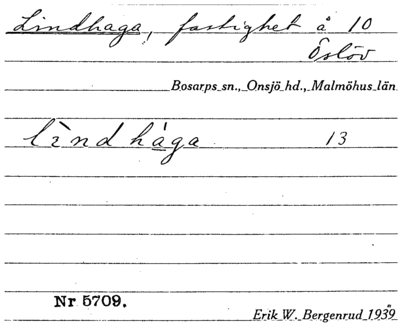 Lindhaga, fastighet å 10
Öslöv
Bosarps sn., Onsjö hd., Malmöhus län
lìnd hága 13
Nr 5709.
Erik W. Bergenrud 1939